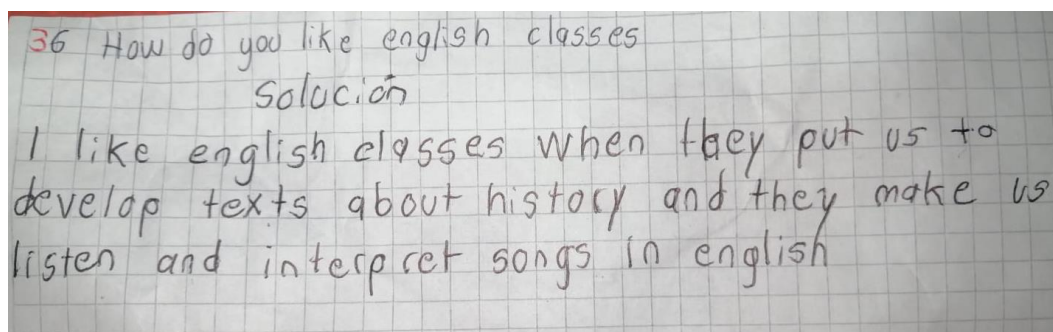 36 How do you like english classes
Solución
I like english classes when they put us to
develop texts about history and they make us
listen and interpret songs in english